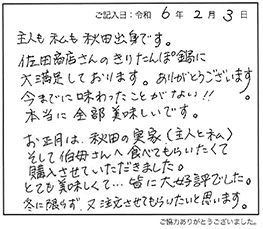 ご記入日：令和 6 年 2 月 3 日
主人も私も秋田出身です。
佐田商店さんのきりたんぽ鍋に
大満足しております。ありがとうございます
今までに味わったことがない!!
本当に全部美味しいです。
お正月は、秋田の実家（主人と私）
そして伯母さんへ食べてもらいたくて
購入させていただきました。
とても美味しくて…皆に大好評でした。
冬に限らず、又注文させてもらいたいと思います。
ご協力ありがとうございました。